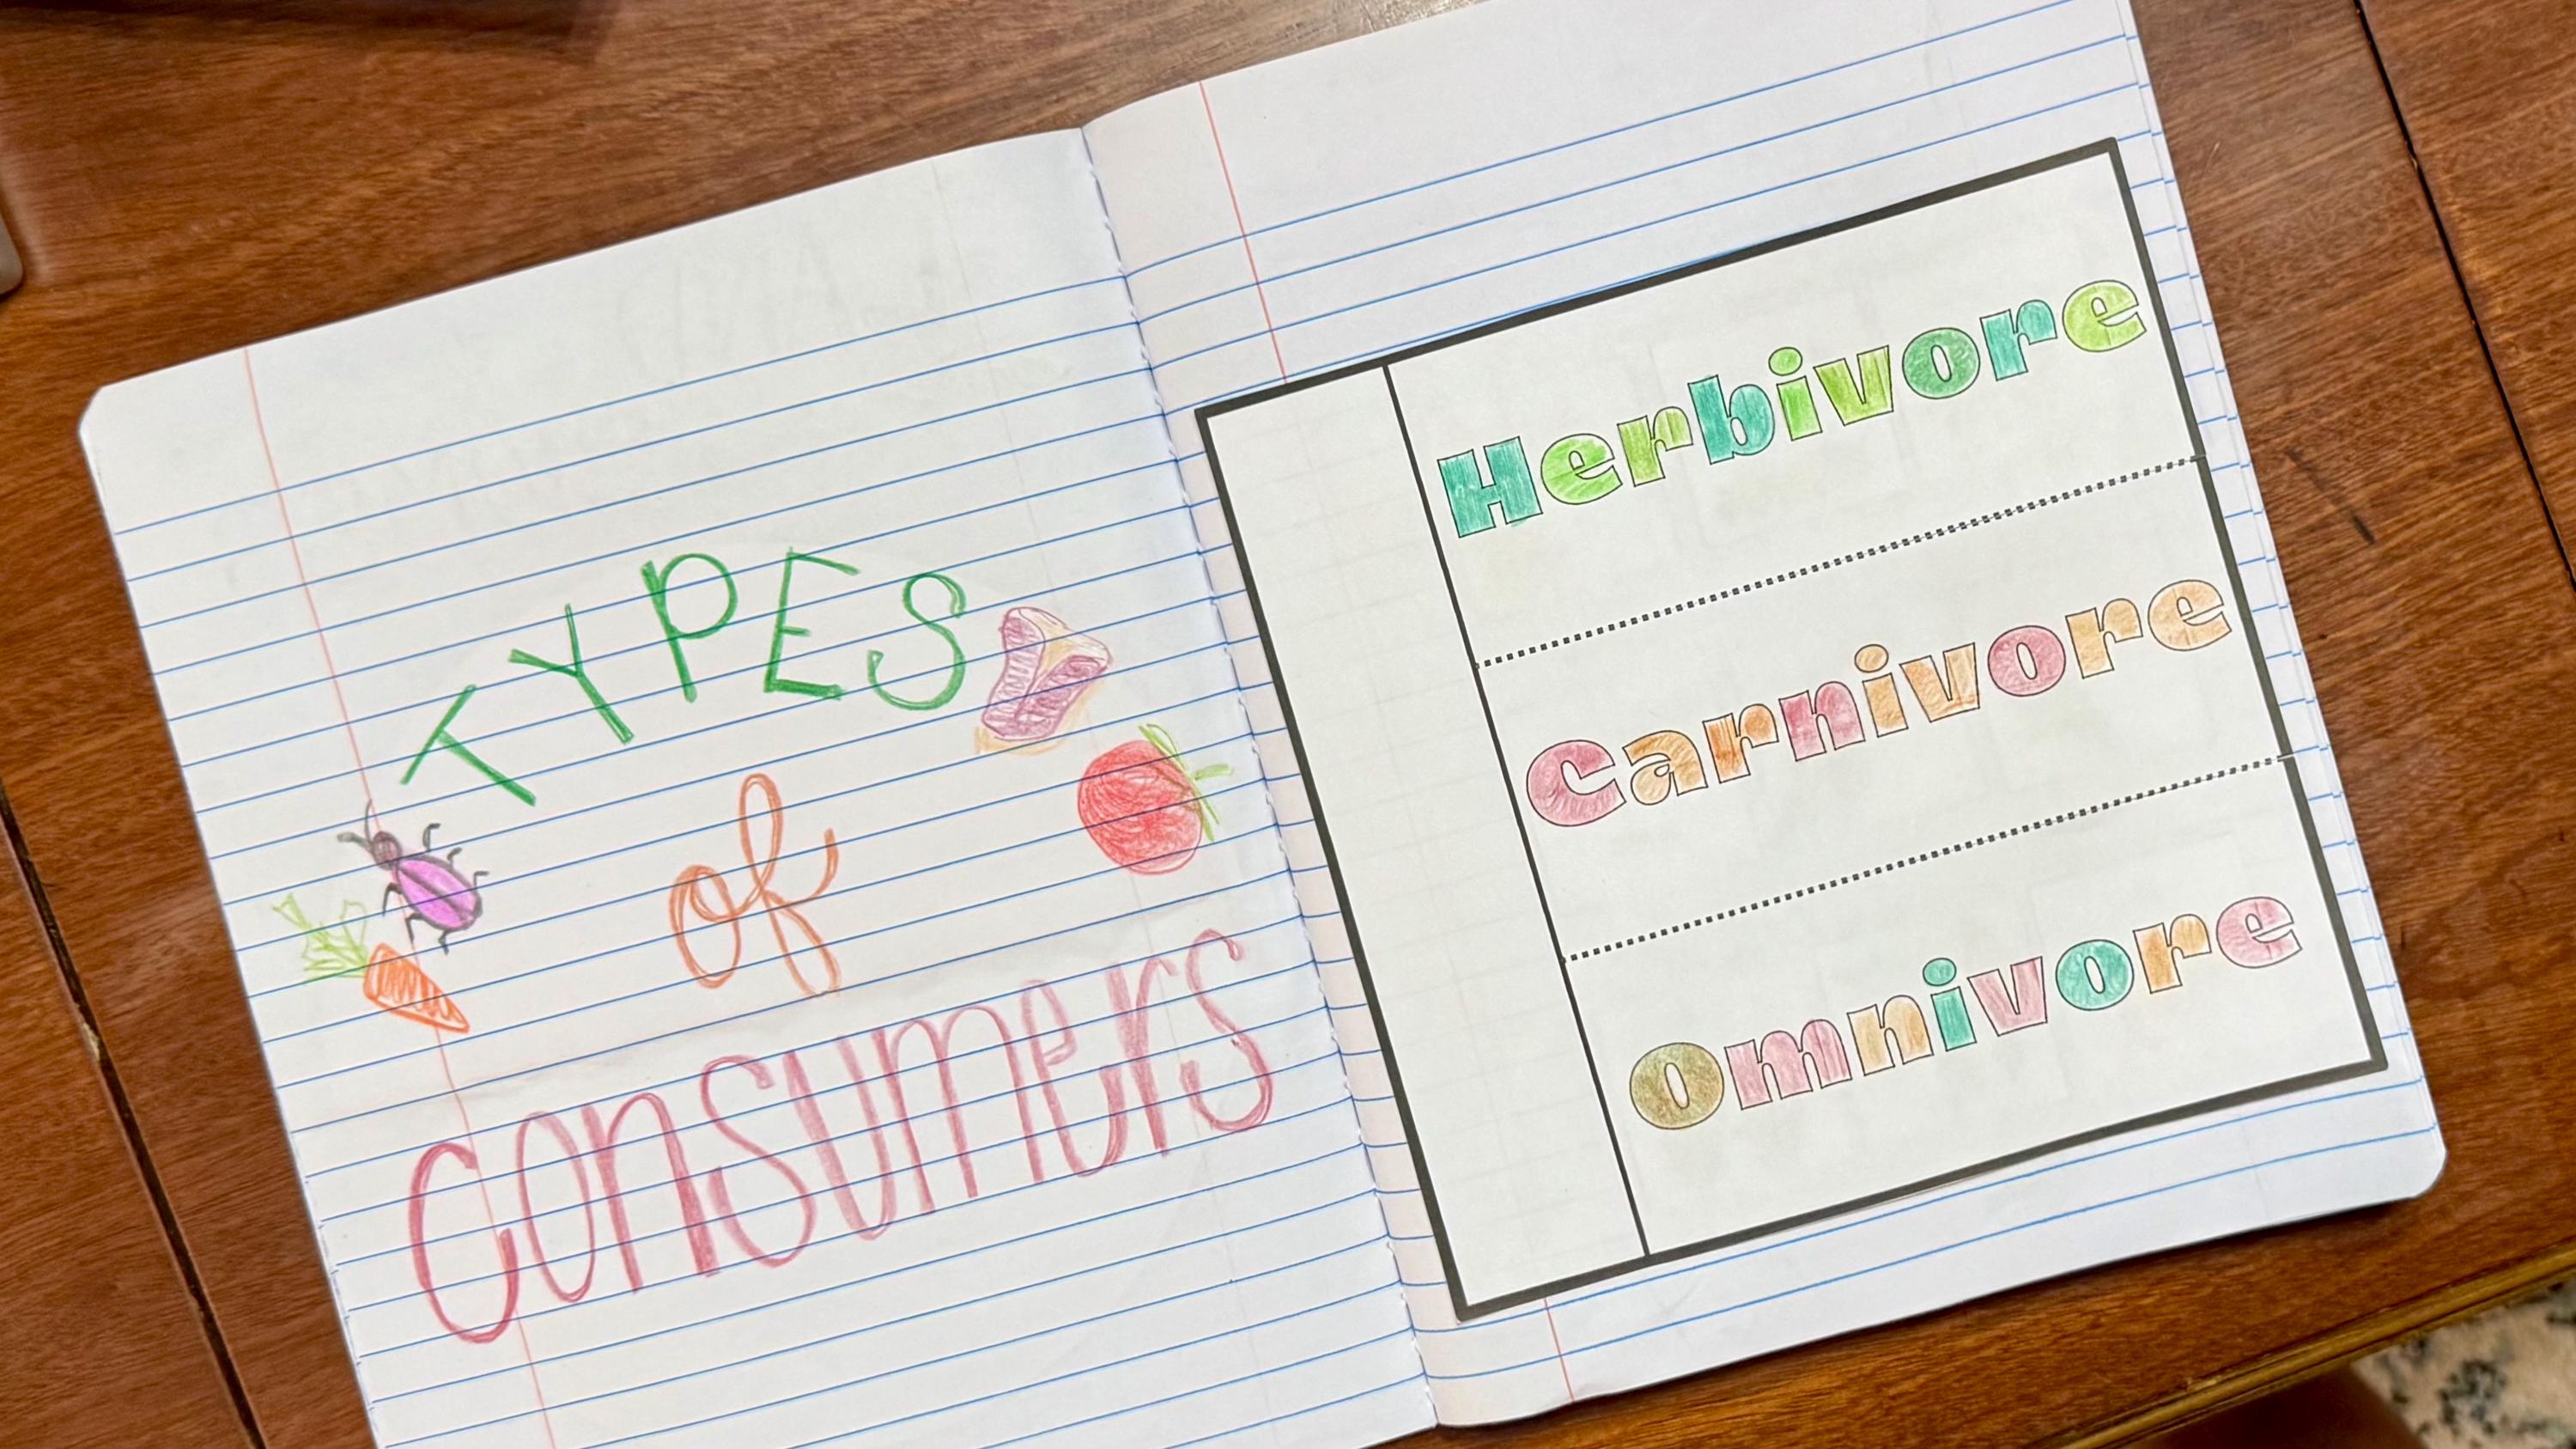 TYPES
of
consumers
Herbivore
Carnivore
Omnivore